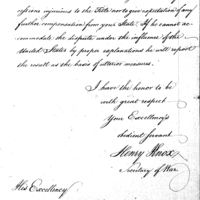 ression injurious to the State nor to give expectation of any
further compensation from your State. If he cannot ac-
commodate the dispute under the influence of the
United States by proper explanations he will report
the result as the basis of ulterior measures.
I have the honor to be
with great respect
Your Excellency's
obedient servant
Henry Knox
Secretary of War
His Excellency